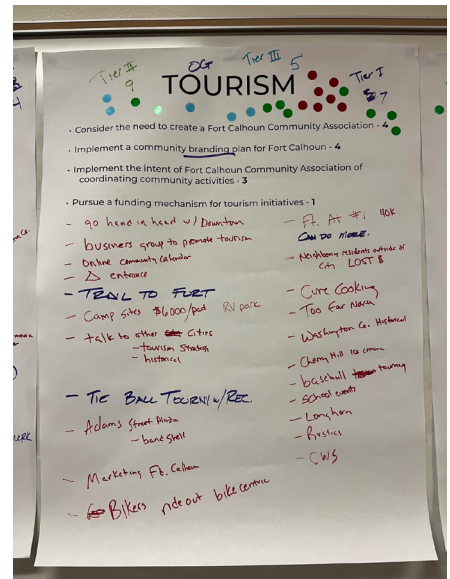 Tier II
9
OG
Tier III
5
TOURISM
Tier I
7
• Consider the need to create a Fort Calhoun Community Association - 4
• Implement a community branding plan for Fort Calhoun - 4
• Implement the intent of Fort Calhoun Community Association of
coordinating community activities - 3
• Pursue a funding mechanism for tourism initiatives - 1
- go hand in hand w/ Downtown
- business group to promote tourism
- Online Community Calendar
- △ entrance
- TRAIL TO FORT
- Camp Sites $6,000/pad RV park
- talk to other Cities
- tourism Strategy
- historical
- TIE BALL TOURN W/ REC.
- Adams Street Plaza
- band shell
- Marketing Ft. Calhoun
- Bikers ride out bike centric
- Ft. At #1 40K
CAN DO MORE.
- Neighboring residents outside of
City LOST $
- Cure Cooking
- Too Far North
- Washington Co. Historical
- Cherry Hill Ice cream
- baseball tourney
- School events
- Longhorn
- Rustics
- CWS